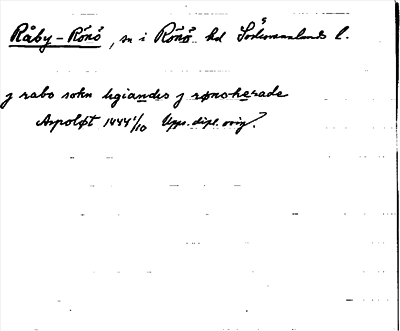 Råby-Rönö, sn i Rönö hd Södermanlands l.
j rabo sokn ligiandis j rønoherade
Aspoløt 1444 1/10 Upps. dipl. orig.